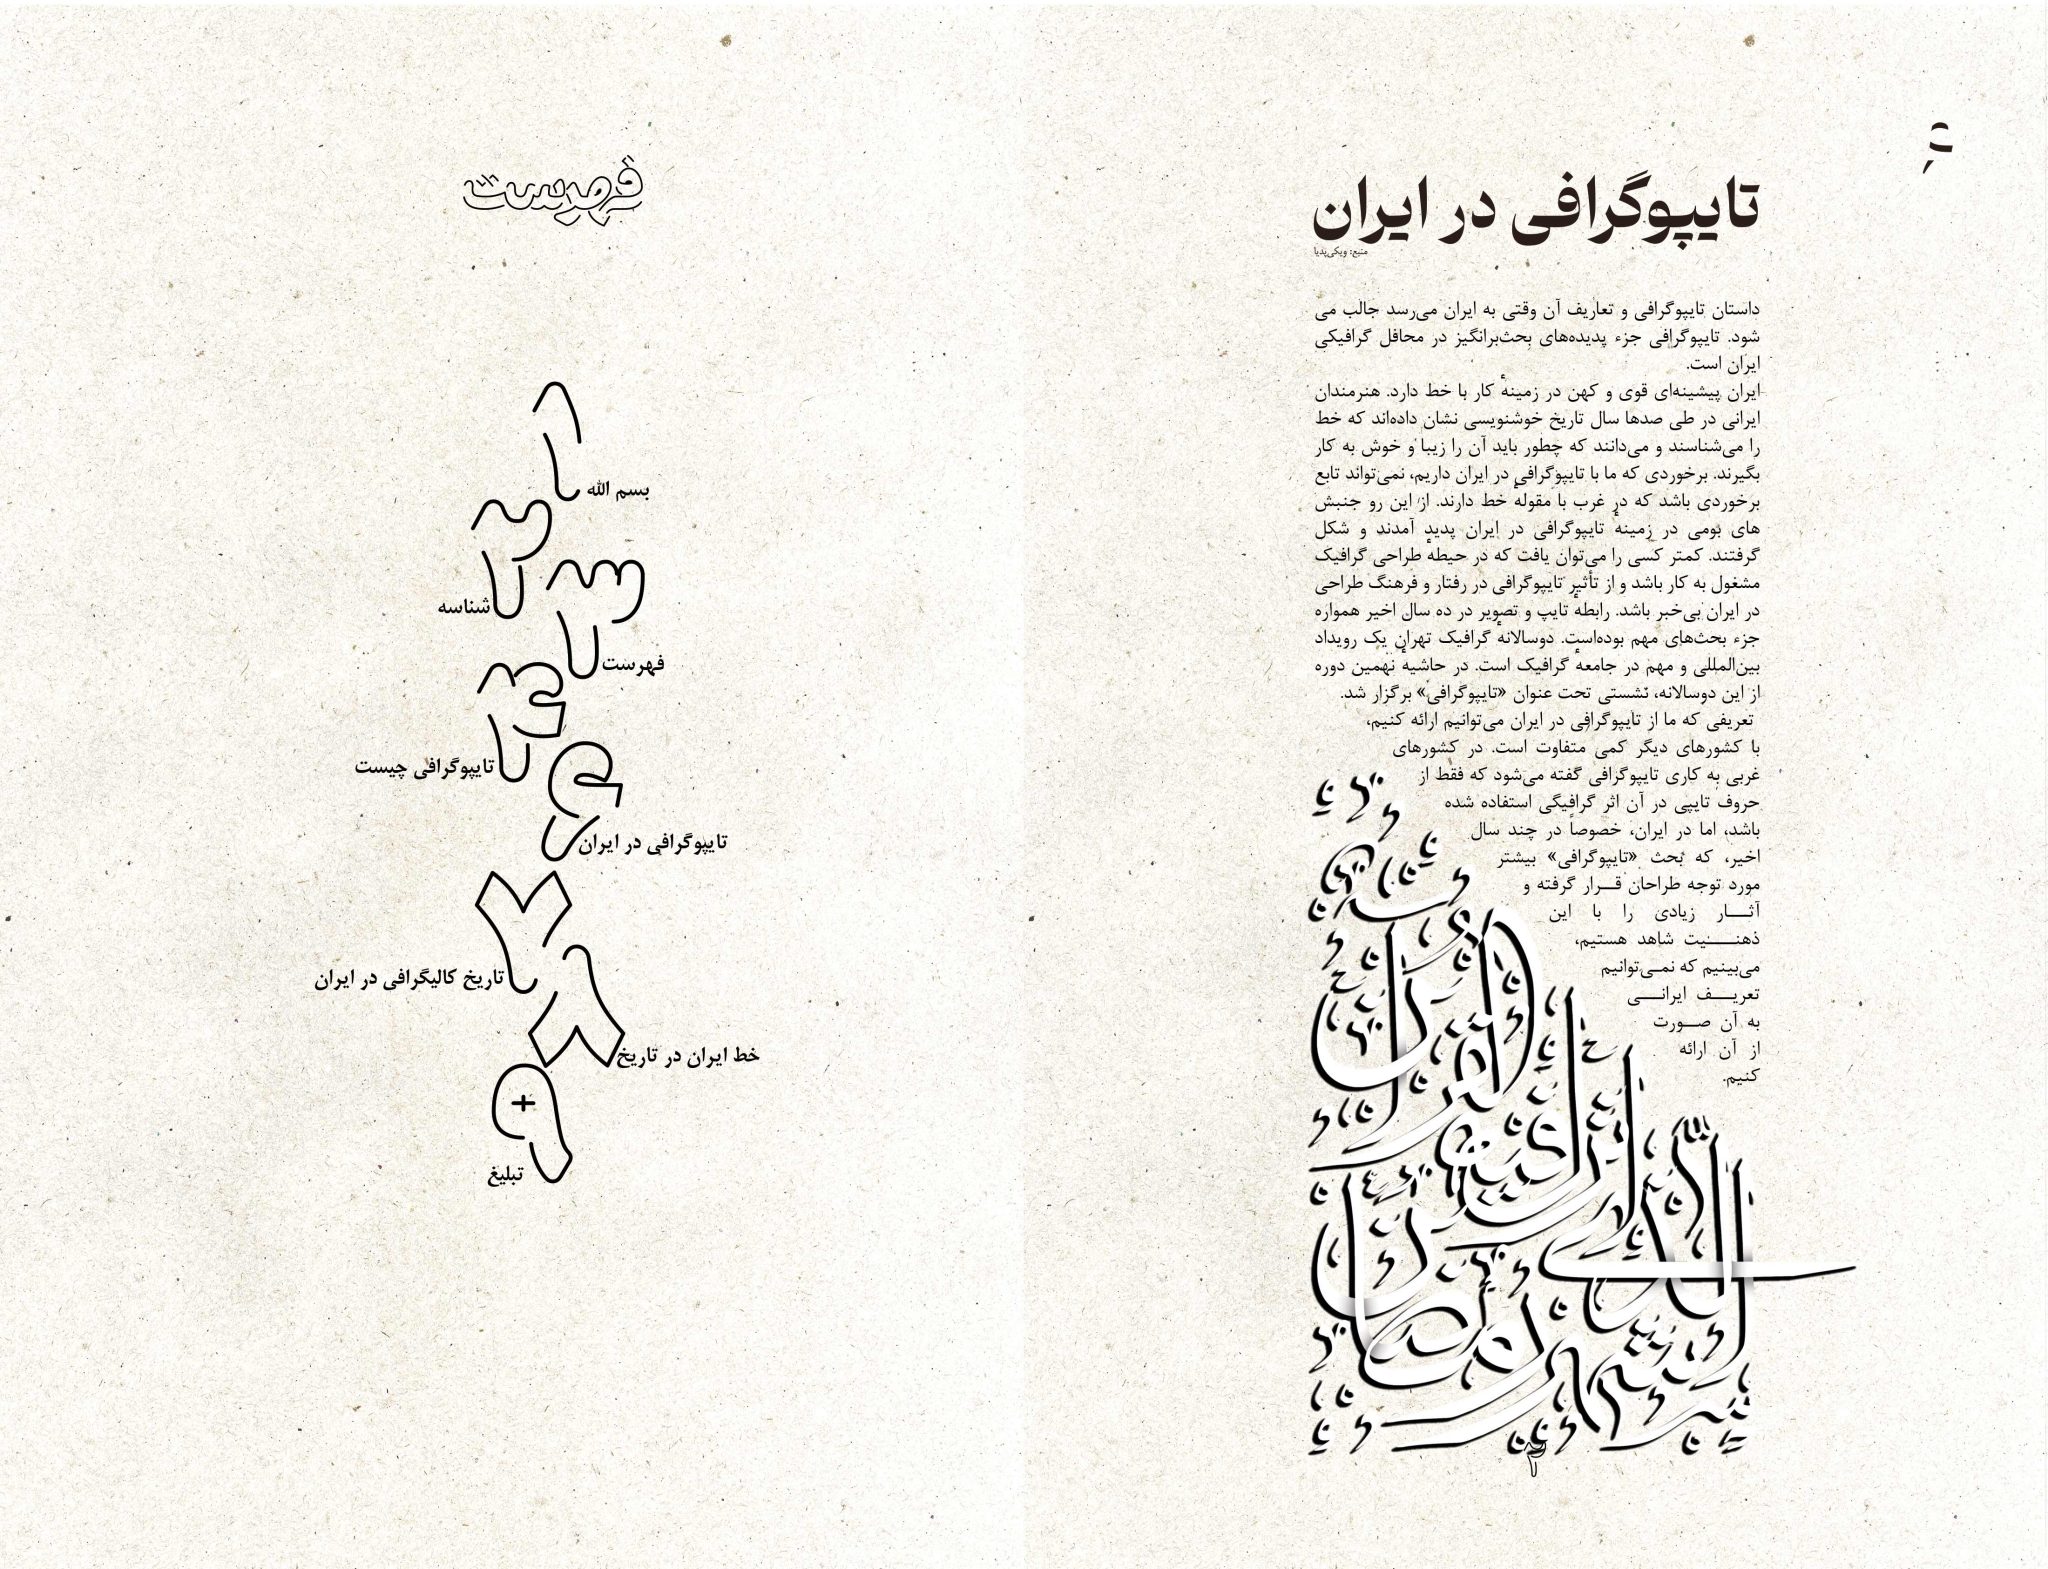 تایپوگرافی در ایران
منبع: ویکی‌پدیا
داستان تایپوگرافی و تعاریف آن وقتی به ایران می‌رسد جالب می
شود. تایپوگرافی جزء پدیده‌های بحث‌برانگیز در محافل گرافیکی
ایران است.
ایران پیشینه‌ای قوی و کهن در زمینهٔ کار با خط دارد. هنرمندان
ایرانی در طی صدها سال تاریخ خوشنویسی نشان داده‌اند که خط
را می‌شناسند و می‌دانند که چطور باید آن را زیبا و خوش به کار
بگیرند. برخوردی که ما با تایپوگرافی در ایران داریم، نمی‌تواند تابع
برخوردی باشد که در غرب با مقولهٔ خط دارند. از این رو جنبش
های بومی در زمینهٔ تایپوگرافی در ایران پدید آمدند و شکل
گرفتند. کمتر کسی را می‌توان یافت که در حیطهٔ طراحی گرافیک
مشغول به کار باشد و از تأثیر تایپوگرافی در رفتار و فرهنگ طراحی
در ایران بی‌خبر باشد. رابطهٔ تایپ و تصویر در ده سال اخیر همواره
جزء بحث‌های مهم بوده‌است. دوسالانهٔ گرافیک تهران یک رویداد
بین‌المللی و مهم در جامعهٔ گرافیک است. در حاشیهٔ نهمین دوره
از این دوسالانه، نشستی تحت عنوان «تایپوگرافی» برگزار شد.
تعریفی که ما از تایپوگرافی در ایران می‌توانیم ارائه کنیم،
با کشورهای دیگر کمی متفاوت است. در کشورهای
غربی به کاری تایپوگرافی گفته می‌شود که فقط از
حروف تایپی در آن اثر گرافیگی استفاده شده
باشد، اما در ایران، خصوصاً در چند سال
اخیر، که بحث «تایپوگرافی» بیشتر
مورد توجه طراحان قـــرار گرفته و
آثـــار زیادی را با این
ذهنـــیت شاهد هستیم،
می‌بینیم که نمـی‌توانیم
تعریـــف ایرانـــی
به آن صـــورت
از آن ارائه
کنیم.
فهرست
۱
بسم الله
۲
شناسه
۳
فهرست
۴
تایپوگرافی چیست
تایپوگرافی در ایران
۷
تاریخ کالیگرافی در ایران
۸
خط ایران در تاریخ
۹
تبلیغ